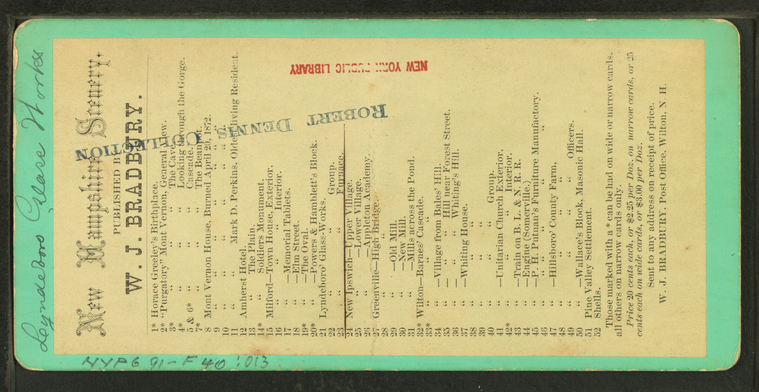 Lyndeboro Glass Works
New Hampshire Scenery.
PUBLISHED BY
W. J. BRADBURY.
1* Horace Greeley's Birthplace.
2* "Purgatory" Mont Vernon, General View.
3* „ „ The Cave.
4* „ „ Looking through the Gorge.
5 & 6* „ „ Cascade.
7* „ „ The Bean Pot.
8 Mont Vernon House, Burned April 20, 1872.
9 „ „ „ „ „
10 „ „ „ „ „
11 „ „ Mark D. Perkins, Oldest living Resident.
12 Amherst Hotel.
13 „ The Plain.
14* „ Soldiers Monument.
15 Milford—Town House, Exterior.
16 „ „ „ Interior.
17 „ —Memorial Tablets.
18 „ —Elm Street.
19* „ —The Oval.
20* „ —Powers & Hamblett's Block.
21 Lyndeboro' Glass-Works.
22 „ „ Group.
23 „ „ Furnace.
24 New Ipswich—Upper Village.
25 „ „ —Lower Village.
26 „ „ —Appleton Academy.
27 Greenville—High Bridge.
28 „ „ „
29 „ —Old Mill.
30 „ —New Mill.
31 „ —Mills across the Pond.
32* Wilton—Barnes' Cascade.
33* „ „ „
34 „ —Village from Bales' Hill.
35 „ „ „ Hill near Forest Street.
36 „ „ „ Whiting's Hill.
37 „ —Whiting House.
38 „ „ „
39 „ „ „
40 „ „ „ Group.
41 „ —Unitarian Church Exterior.
42* „ „ „ Interior.
43 „ —Train on B. L. & N. R. R.
44 „ —Engine (Somerville.)
45 „ —P. H. Putnam's Furniture Manufactory.
46 „ „ „ „ „
47 „ —Hillsboro' County Farm,
48 „ „ „ „
49 „ „ „ „ Officers.
50 „ —Wallace's Block, Masonic Hall.
51 Pine Valley Settlement.
52 Shells.
Those marked with a * can be had on wide or narrow cards,
all others on narrow cards only.
Price 20 cents each, or $2.25 per Doz. on narrow cards, or 25
cents each on wide cards, or $3.00 per Doz.
Sent to any address on receipt of price.
W. J. BRADBURY, Post Office, Wilton, N. H.
NEW YORK PUBLIC LIBRARY
ROBERT DENNIS COLLECTION
NYPG 91-F40 :013